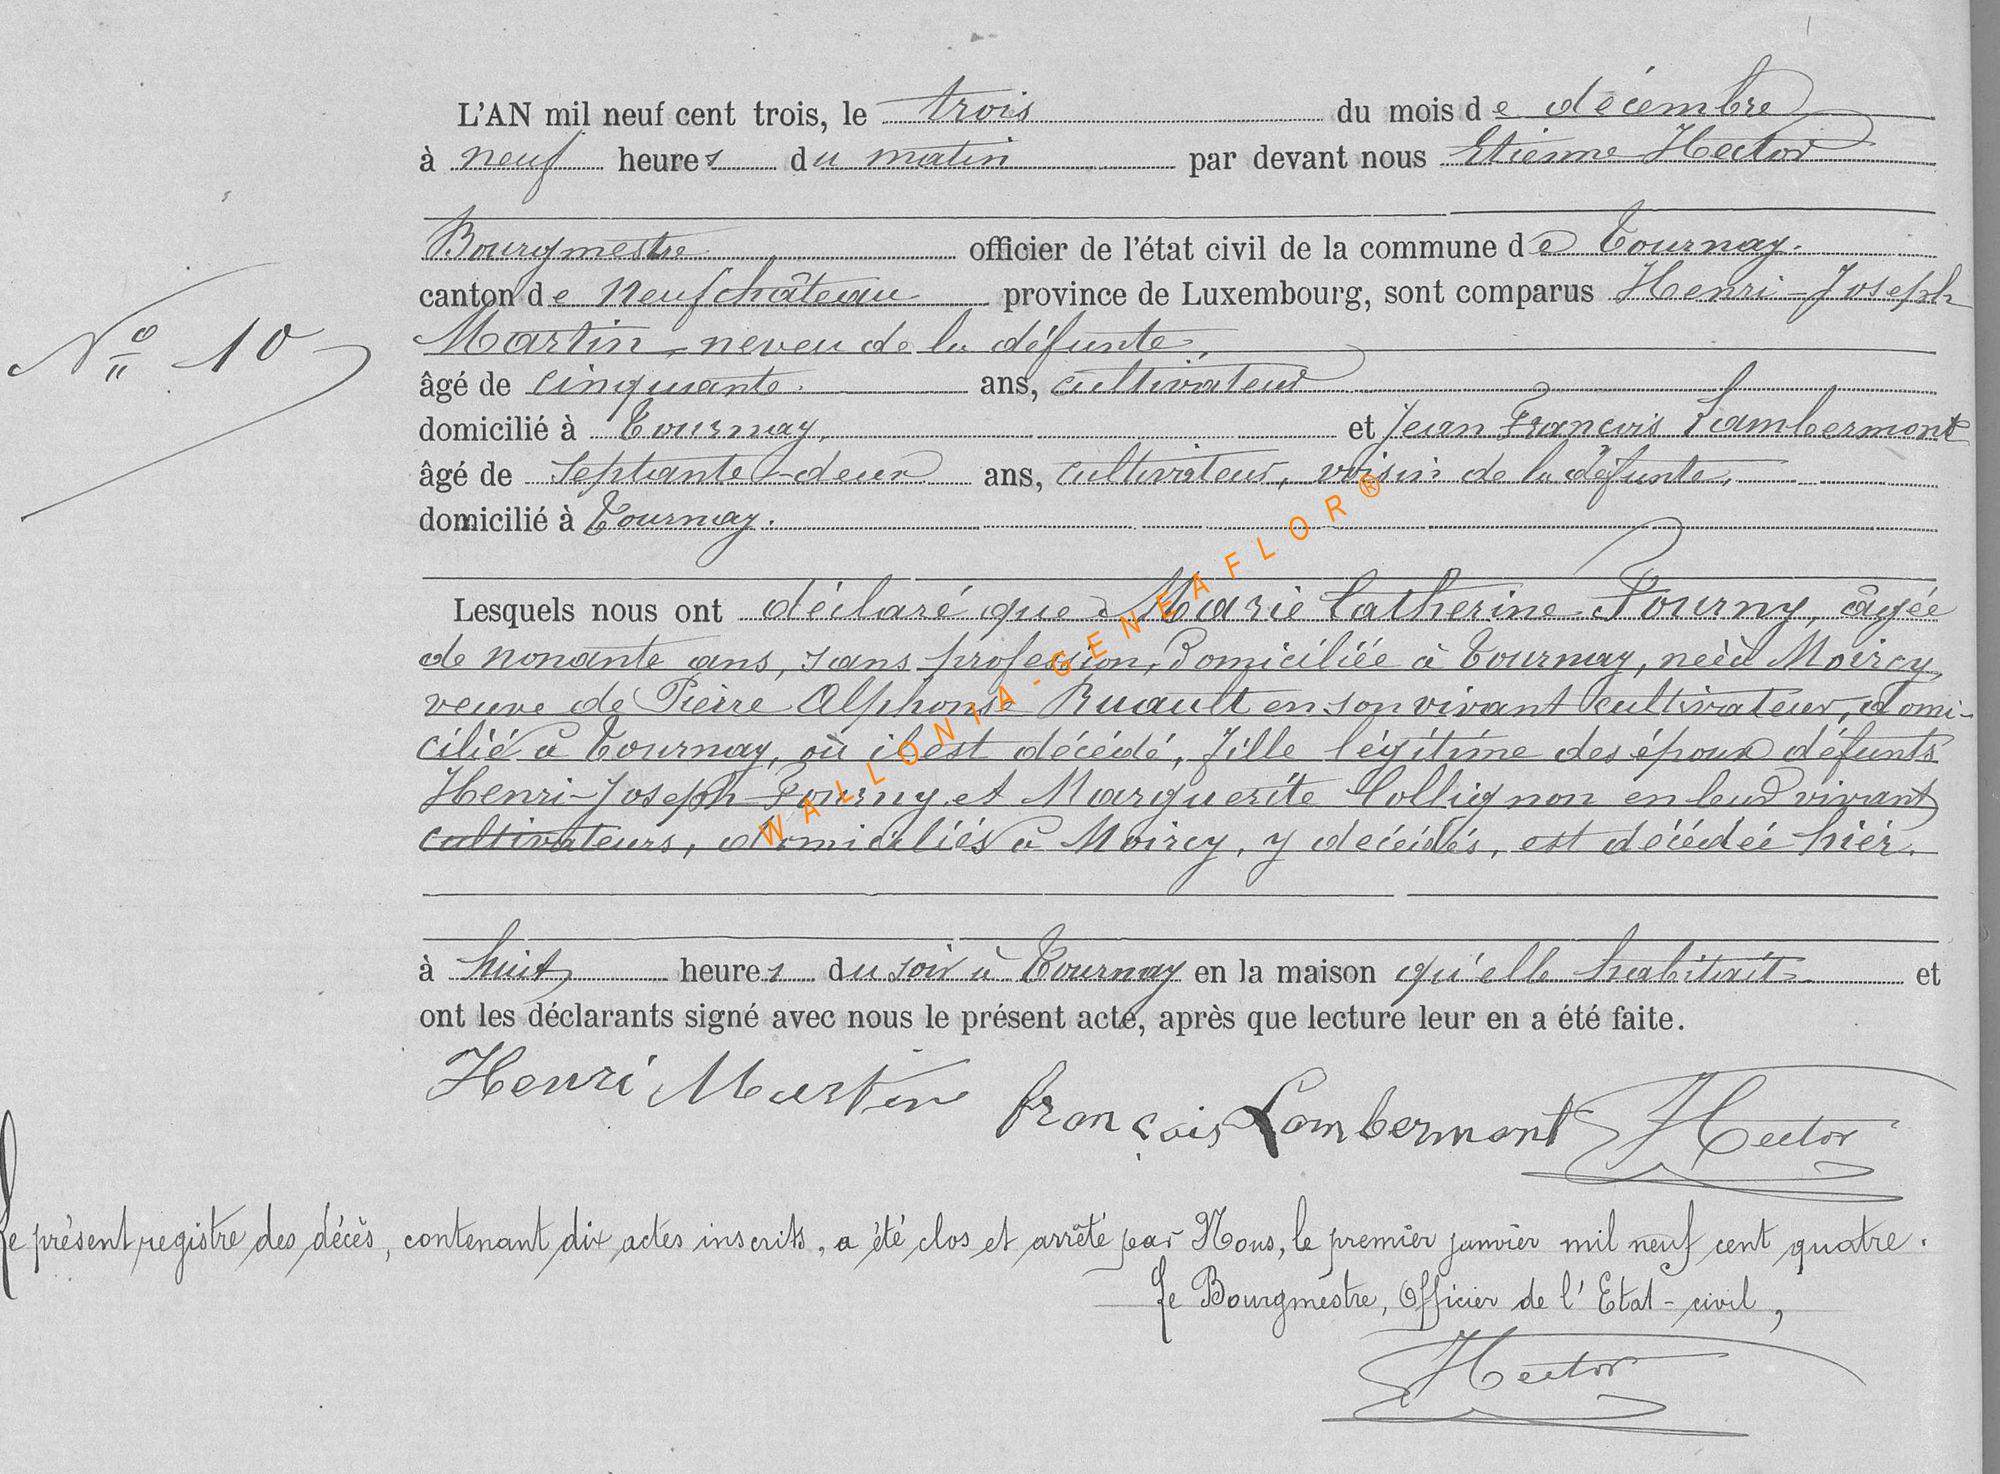 L'AN mil neuf cent trois, le trois du mois de décembre
à neuf heures du matin par devant nous Etienne Hector
Bourgmestre officier de l'état civil de la commune de Tournay.
canton de Neufchâteau province de Luxembourg, sont comparus Henri-Joseph
N° 10
Martin, neveu de la défunte,
âgé de cinquante. ans, cultivateur
domicilié à Tournay, et Jean François Lambermont
âgé de septante-deux ans, cultivateur, voisin de la défunte,
domicilié à Tournay.
Lesquels nous ont déclaré que Marie Catherine Fourny, âgée
de nonante ans, sans profession, domiciliée à Tournay, née à Moircy,
veuve de Pierre Alphonse Ruault en son vivant cultivateur, domi-
cilié à Tournay, où il est décédé, fille légitime des époux défunts
Henri-Joseph Fourny et Marguerite Collignon en leur vivant
cultivateurs, domiciliés à Moircy, y décédés, est décédée hier.
à huit heures du soir à Tournay en la maison qu'elle habitait et
ont les déclarants signé avec nous le présent acte, après que lecture leur en a été faite.
Henri Martin François Lambermont Hector
Le présent registre des décès, contenant dix actes inscrits, a été clos et arrêté par Nous, le premier janvier mil neuf cent quatre.
Le Bourgmestre, Officier de l'Etat-civil,
Hector
WALLONIA-GENEAFLOR®